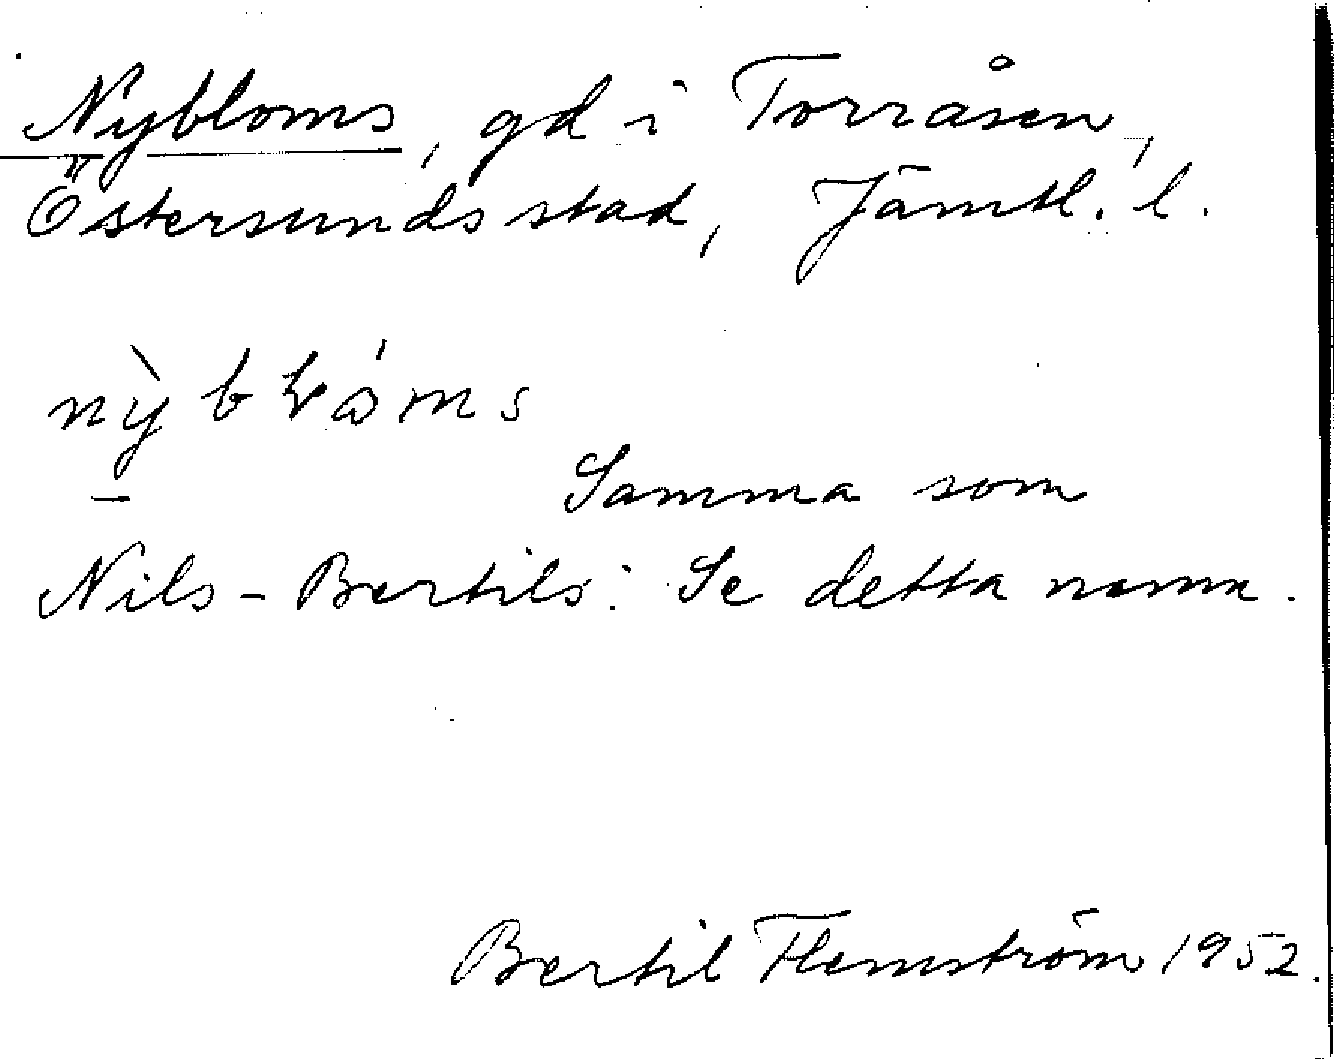 Nybloms, gd i Torråsen,
Östersunds stad, Jämtl. l.
Samma som
Nils-Bertils. Se detta namn.
Bertil Flemström 1952.